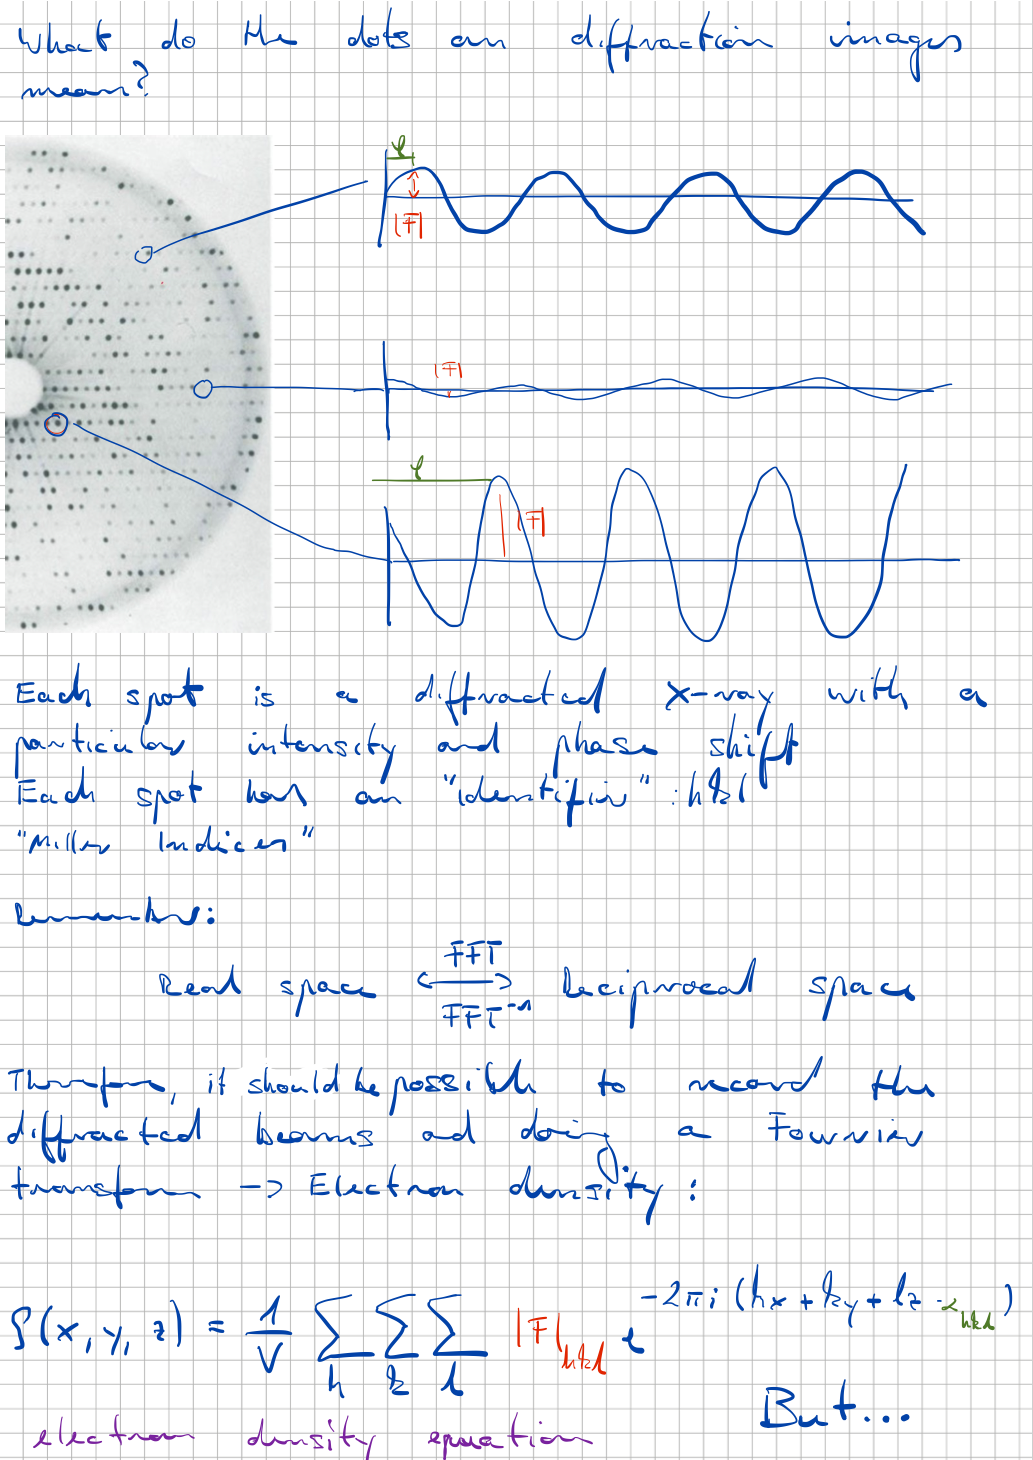 What do the dots on diffraction images
mean?
φ
|F|
|F|
φ
|F|
Each spot is a diffracted X-ray with a
particular intensity and phase shift
Each spot has an "identifier": hkl
"Miller Indices"
Remember:
Real space FFT Reciprocal space
FFT⁻¹
Therefore, it should be possible to record the
diffracted beams and doing a Fourier
transform -> Electron density:
ρ(x, y, z) = 1/V ∑h ∑k ∑l |F|hkl e^-2πi (hx + ky + lz - αhkl)
But...
electron density equation